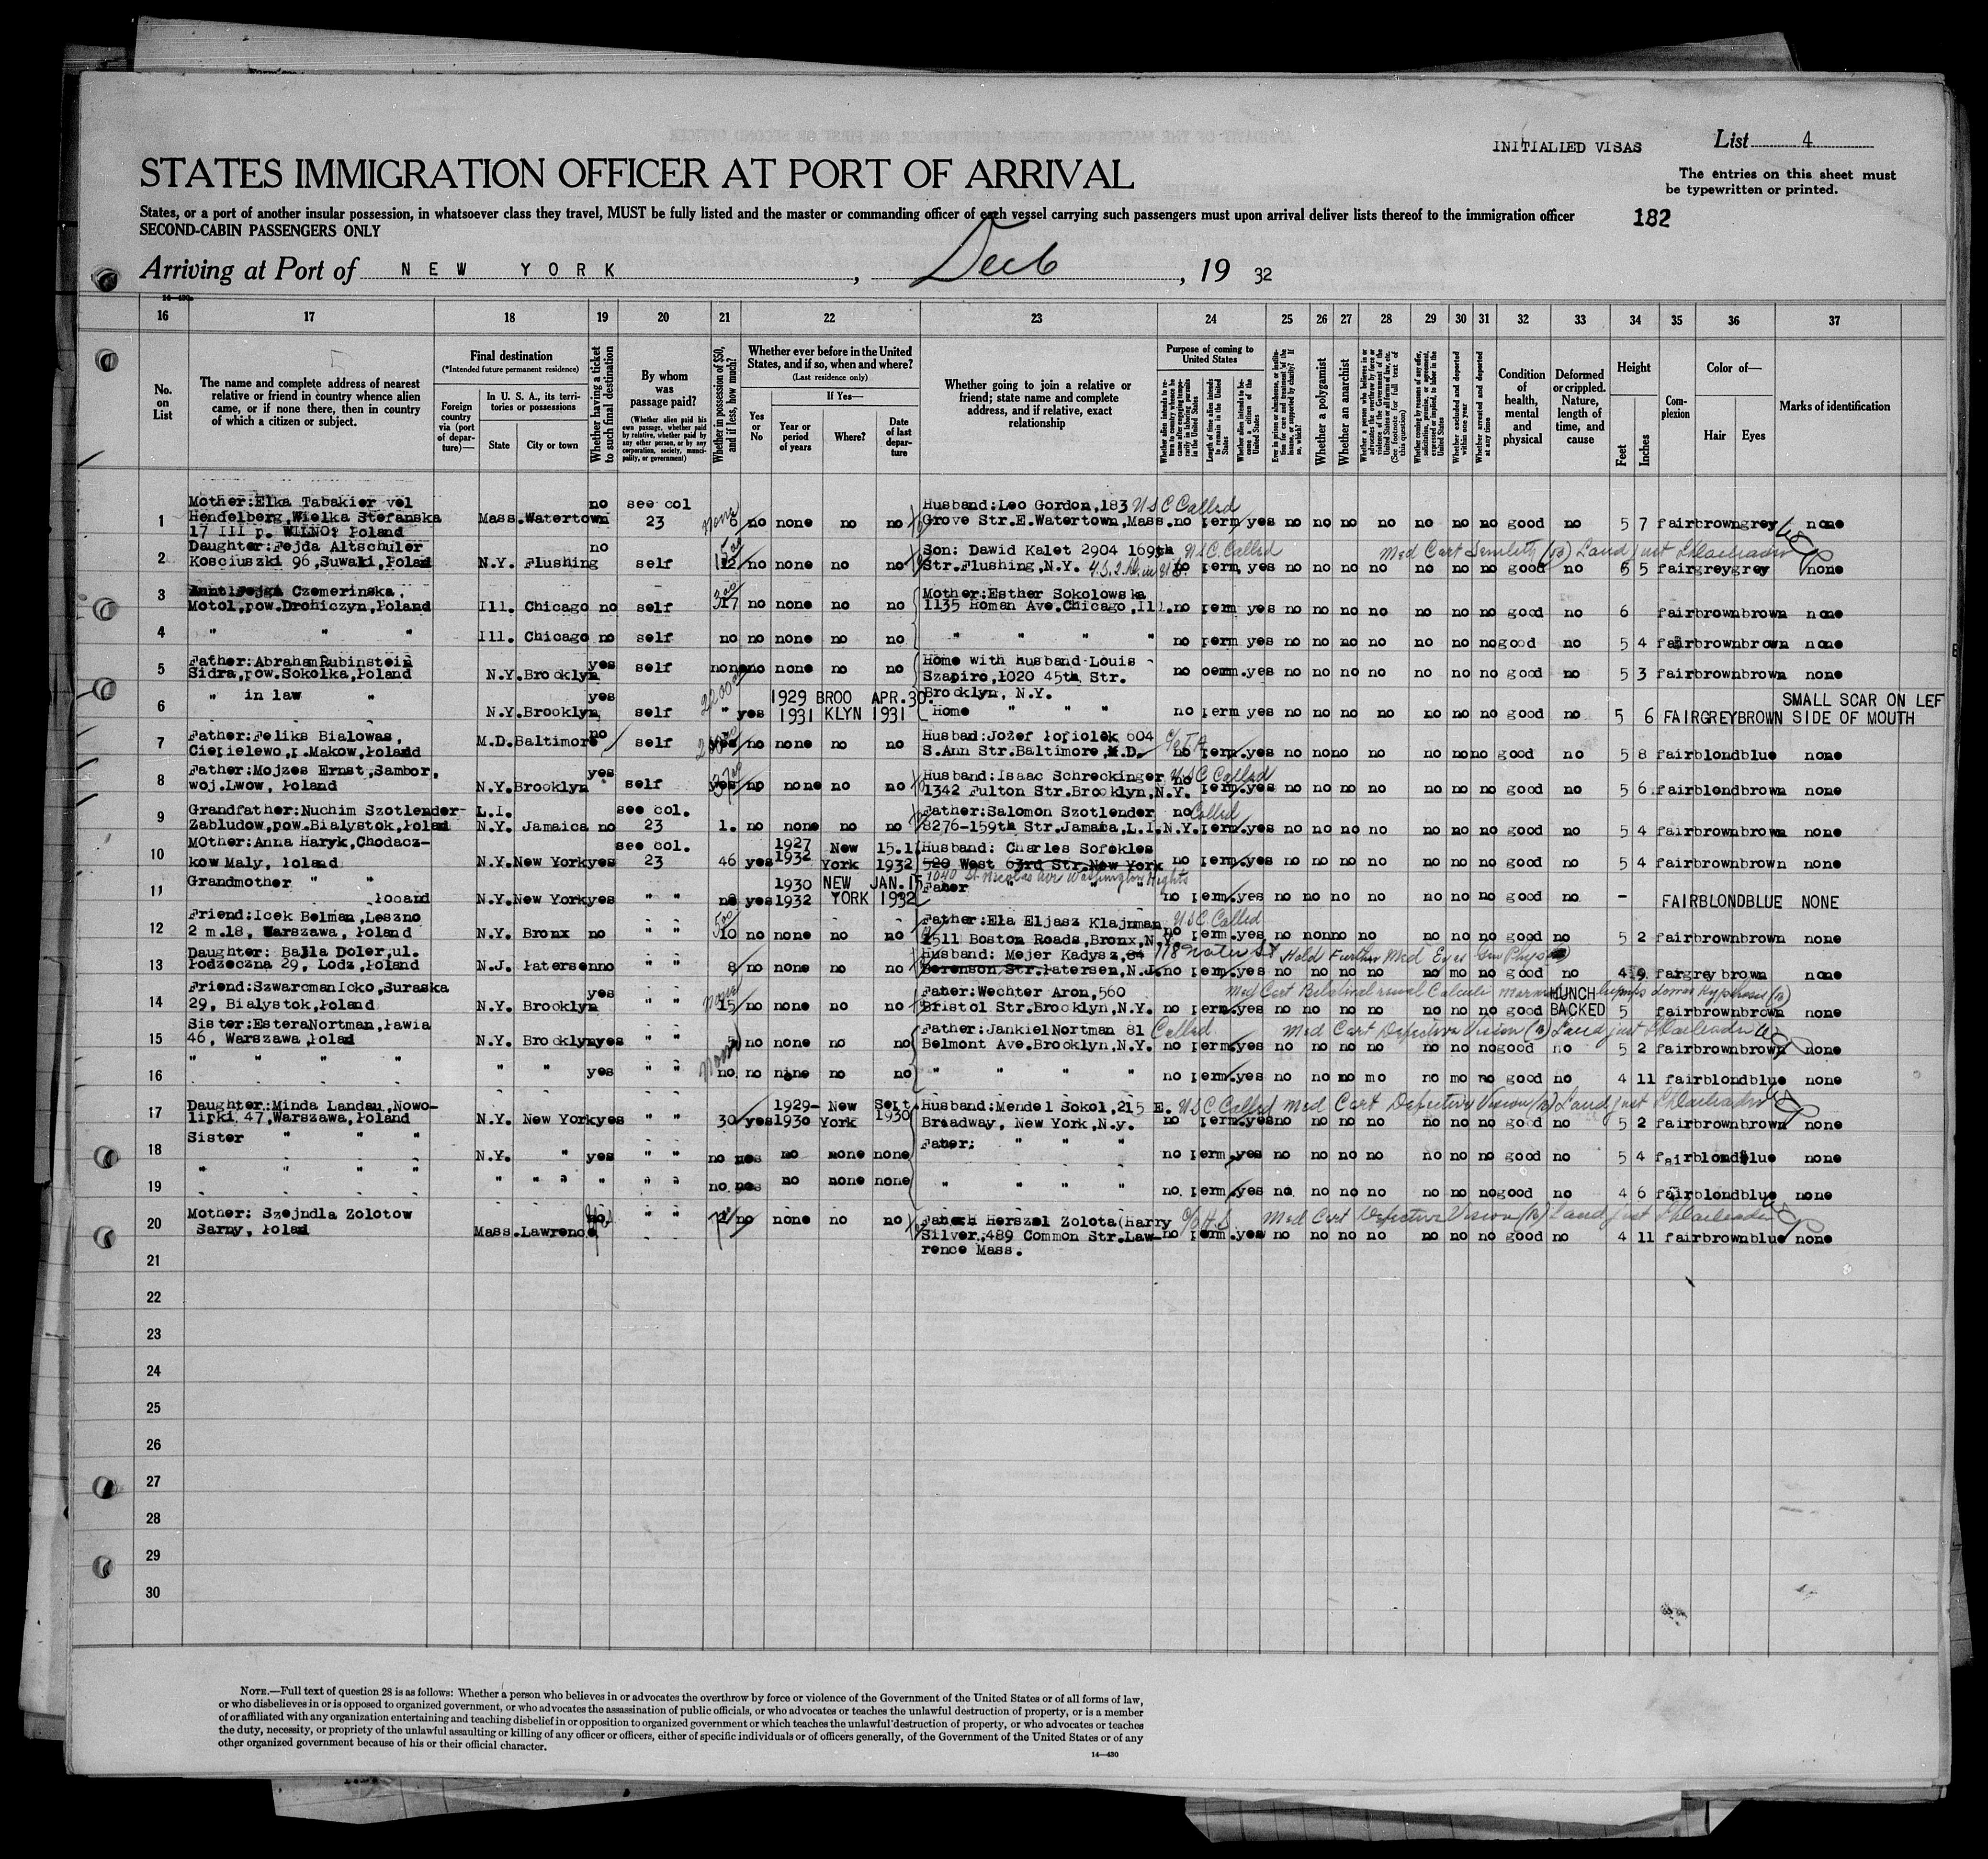 INITIALLED VISAS
List 4
STATES IMMIGRATION OFFICER AT PORT OF ARRIVAL
The entries on this sheet must
be typewritten or printed.
States, or a port of another insular possession, in whatsoever class they travel, MUST be fully listed and the master or commanding officer of each vessel carrying such passengers must upon arrival deliver lists thereof to the immigration officer
182
SECOND-CABIN PASSENGERS ONLY
Arriving at Port of NEW YORK, Dec 6, 19 32
14—430
16 17 18 19 20 21 22 23 24 25 26 27 28 29 30 31 32 33 34 35 36 37
No. on List
The name and complete address of nearest relative or friend in country whence alien came, or if none there, then in country of which a citizen or subject.
Final destination
(*Intended future permanent residence)
Foreign country via (port of departure)—
In U. S. A., its territories or possessions
State City or town
Whether having a ticket to such final destination
By whom was passage paid?
(Whether alien paid his own passage, whether paid by relative, whether paid by any other person, or by any corporation, society, municipality, or government)
Whether in possession of $50, and if less, how much?
Whether ever before in the United States, and if so, when and where?
(Last residence only)
Yes or No
If Yes—
Year or period of years
Where?
Date of last departure
Whether going to join a relative or friend; state name and complete address, and if relative, exact relationship
Purpose of coming to United States
Length of time alien intends to remain in the United States
Whether alien intends to become a citizen of the United States
Whether a polygamist
Whether an anarchist
Whether excluded and deported within one year
Whether arrested and deported at any time
Condition of health, mental and physical
Deformed or crippled. Nature, length of time, and cause
Height
Feet Inches
Complexion
Color of—
Hair Eyes
Marks of identification
1 Mother:Elka Tabakier vel no see col Husband:Leo Gordon,183 USC Called
Hendelberg,Wielka Stefanska Mass.Watertown 23 none 6 no none no no Grove Str.E.Watertown,Mass. no perm yes no no no no no no no good no 5 7 fair brown grey none
17 III p. WILNO, Poland
2 Daughter:Fejda Altschuler no Son: Dawid Kalet 2904 169th USC Called Med Cert Senility (B) Land just
Kosciuszki 96,Suwalki,Poland N.Y. Flushing self 12 no none no no Str.Flushing,N.Y. no perm. yes no no no no no no no good no 5 5 fair grey grey none
3 Czemerinska, Mother:Esther Sokolowska
Motol,pow.Drohiczyn,Poland Ill. Chicago no self 17 no none no no 1135 Homan Ave.Chicago,Ill. no perm yes no no no no no no no good no 6 fair brown brown none
4 " " " Ill. Chicago no self no no none no no " " " " no perm.yes no no no no no no no good no 5 4 fair brown brown none
5 Father:Abraham Rubinstein yes Home with husband Louis
Sidra,pow.Sokolka,Poland N.Y.Brooklyn self none no none no no Szapiro,1020 45th Str. no perm.yes no no no no no no no good no 5 3 fair brown brown none
6 " in law " yes 1929 BROO APR.30. Brooklyn, N.Y. SMALL SCAR ON LEF
N.Y.Brooklyn self " yes 1931 KLYN 1931 Home " " " no perm yes no no no no no no no good no 5 6 FAIR GREY BROWN SIDE OF MOUTH
7 Father:Feliks Bialowas, no Husbad:Jozef Popiolek 604
Ciepielewo,p.Makow,Poland M.D.Baltimore self yes no none no no S.Ann Str.Baltimore,M.D. no perm.yes no no no no no no no good no 5 8 fair blond blue none
8 Father:Mojzes Ernst,Sambor, yes Husband:Isaac Schreckinger USC Called
woj.Lwow, Poland N.Y.Brooklyn self yes no none no no 1342 Fulton Str.Brooklyn,N.Y. no perm.yes no no no no no no no good no 5 6 fair blond brown none
9 Grandfather:Nuchim Szotlender- L.I. see col. Father:Salomon Szotlender no Called
Zabludow,pow.Bialystok,Poland N.Y. Jamaica no 23 1. no none no no 8276-159th Str.Jamaica,L.I.N.Y. perm.yes no no no no no no no good no 5 4 fair brown brown none
10 Mother:Anna Haryk,Chodacz- see col. 1927 New 15.1 Husband: Charles Sofokles
kow Maly, Poland N.Y.New York yes 23 46 yes 1932 York 1932 520 West 63rd Str.New York no perm.yes no no no no no no no good no 5 4 fair brown brown none
1040 St Nicolas ave Washington Heights
11 Grandmother " " 1930 NEW JAN.15 Father " " "
Poland N.Y.New York yes " " yes 1932 YORK 1932 no perm.yes no no no no no no no good no - FAIR BLOND BLUE NONE
12 Friend:Icek Belman,Leszno Father:Ela Eljasz Klajnman USC Called
2 m.18, Warszawa, Poland N.Y. Bronx no " " 10 no none no no 1511 Boston Roads,Bronx,N.Y. no perm.yes no no no no no no no good no 5 2 fair brown brown none
13 Daughter: Bajla Doler,ul. Husband: Mejer Kadysz,64 118 Water St Hold Further Med Eyes Gen Phys
Podzeczna 29, Lodz,Poland N.J. Paterson no " " 8 no none no no Berenson Str.Paterson,N.J. no perm.yes no no no no no mo no good no 4 9 fair grey brown none
14 Friend:Szwarcman Icko,Suraska yes Father:Wechter Aron,560 Med Cert Bilateral renal Calculi HUNCH
29, Bialystok,Poland N.Y. Brooklyn " " 15 no none no no Bristol Str.Brooklyn,N.Y. no perm.yes no no no no no no no good BACKED 5 fair brown brown none
15 Sister:Estera Nortman,Pawia Father:Jankiel Nortman 81 Called Med Cert Defective Vision (B) Land just
46, Warszawa,Polad N.Y. Brooklyn yes " " 5 no none no no Belmont Ave.Brooklyn,N.Y. no perm.yes no no no no no no no good no 5 2 fair brown brown none
16 " " " " " " yes " " None no no nine no no " " " " no perm.yes no no no mo no mo no good no 4 11 fair blond blue none
17 Daughter:Minda Landau,Nowo- 1929- New Sept. Husband:Mendel Sokol,215 E. USC Called Med Cert Defective Vision (B) Land just
lipki 47,Warszawa,Poland N.Y. New York yes " " 30 yes 1930 York 1930 Broadway, New York,N.y. no perm.yes no no no no no no no good no 5 2 fair brown brown none
18 Sister " " " N.Y. " yes " " no no none none Father: " " " no perm.yes no no no no no no no good no 5 4 fair blond blue none
19 " " " " " " " " " " no no none none " " " " no perm.yes no no no no no no no good no 4 6 fair blond blue none
20 Mother: Szejndla Zolotow no " " no none no no Father Herszel Zolota(Harry Med Cert Defective Vision (B) Land just
Sarny, Polad Mass.Lawrence Silver,489 Common Str.Law- no perm.yes no no no no no no no good no 4 11 fair brown blue none
rence Mass.
21
22
23
24
25
26
27
28
29
30
NOTE.—Full text of question 28 is as follows: Whether a person who believes in or advocates the overthrow by force or violence of the Government of the United States or of all forms of law,
or who disbelieves in or is opposed to organized government, or who advocates the assassination of public officials, or who advocates or teaches the unlawful destruction of property, or is a member
of or affiliated with any organization entertaining and teaching disbelief in or opposition to organized government or which teaches the unlawful destruction of property, or who advocates or teaches
the duty, necessity, or propriety of the unlawful assaulting or killing of any officer or officers, either of specific individuals or of officers generally, of the Government of the United States or of any
other organized government because of his or their official character.
14—430